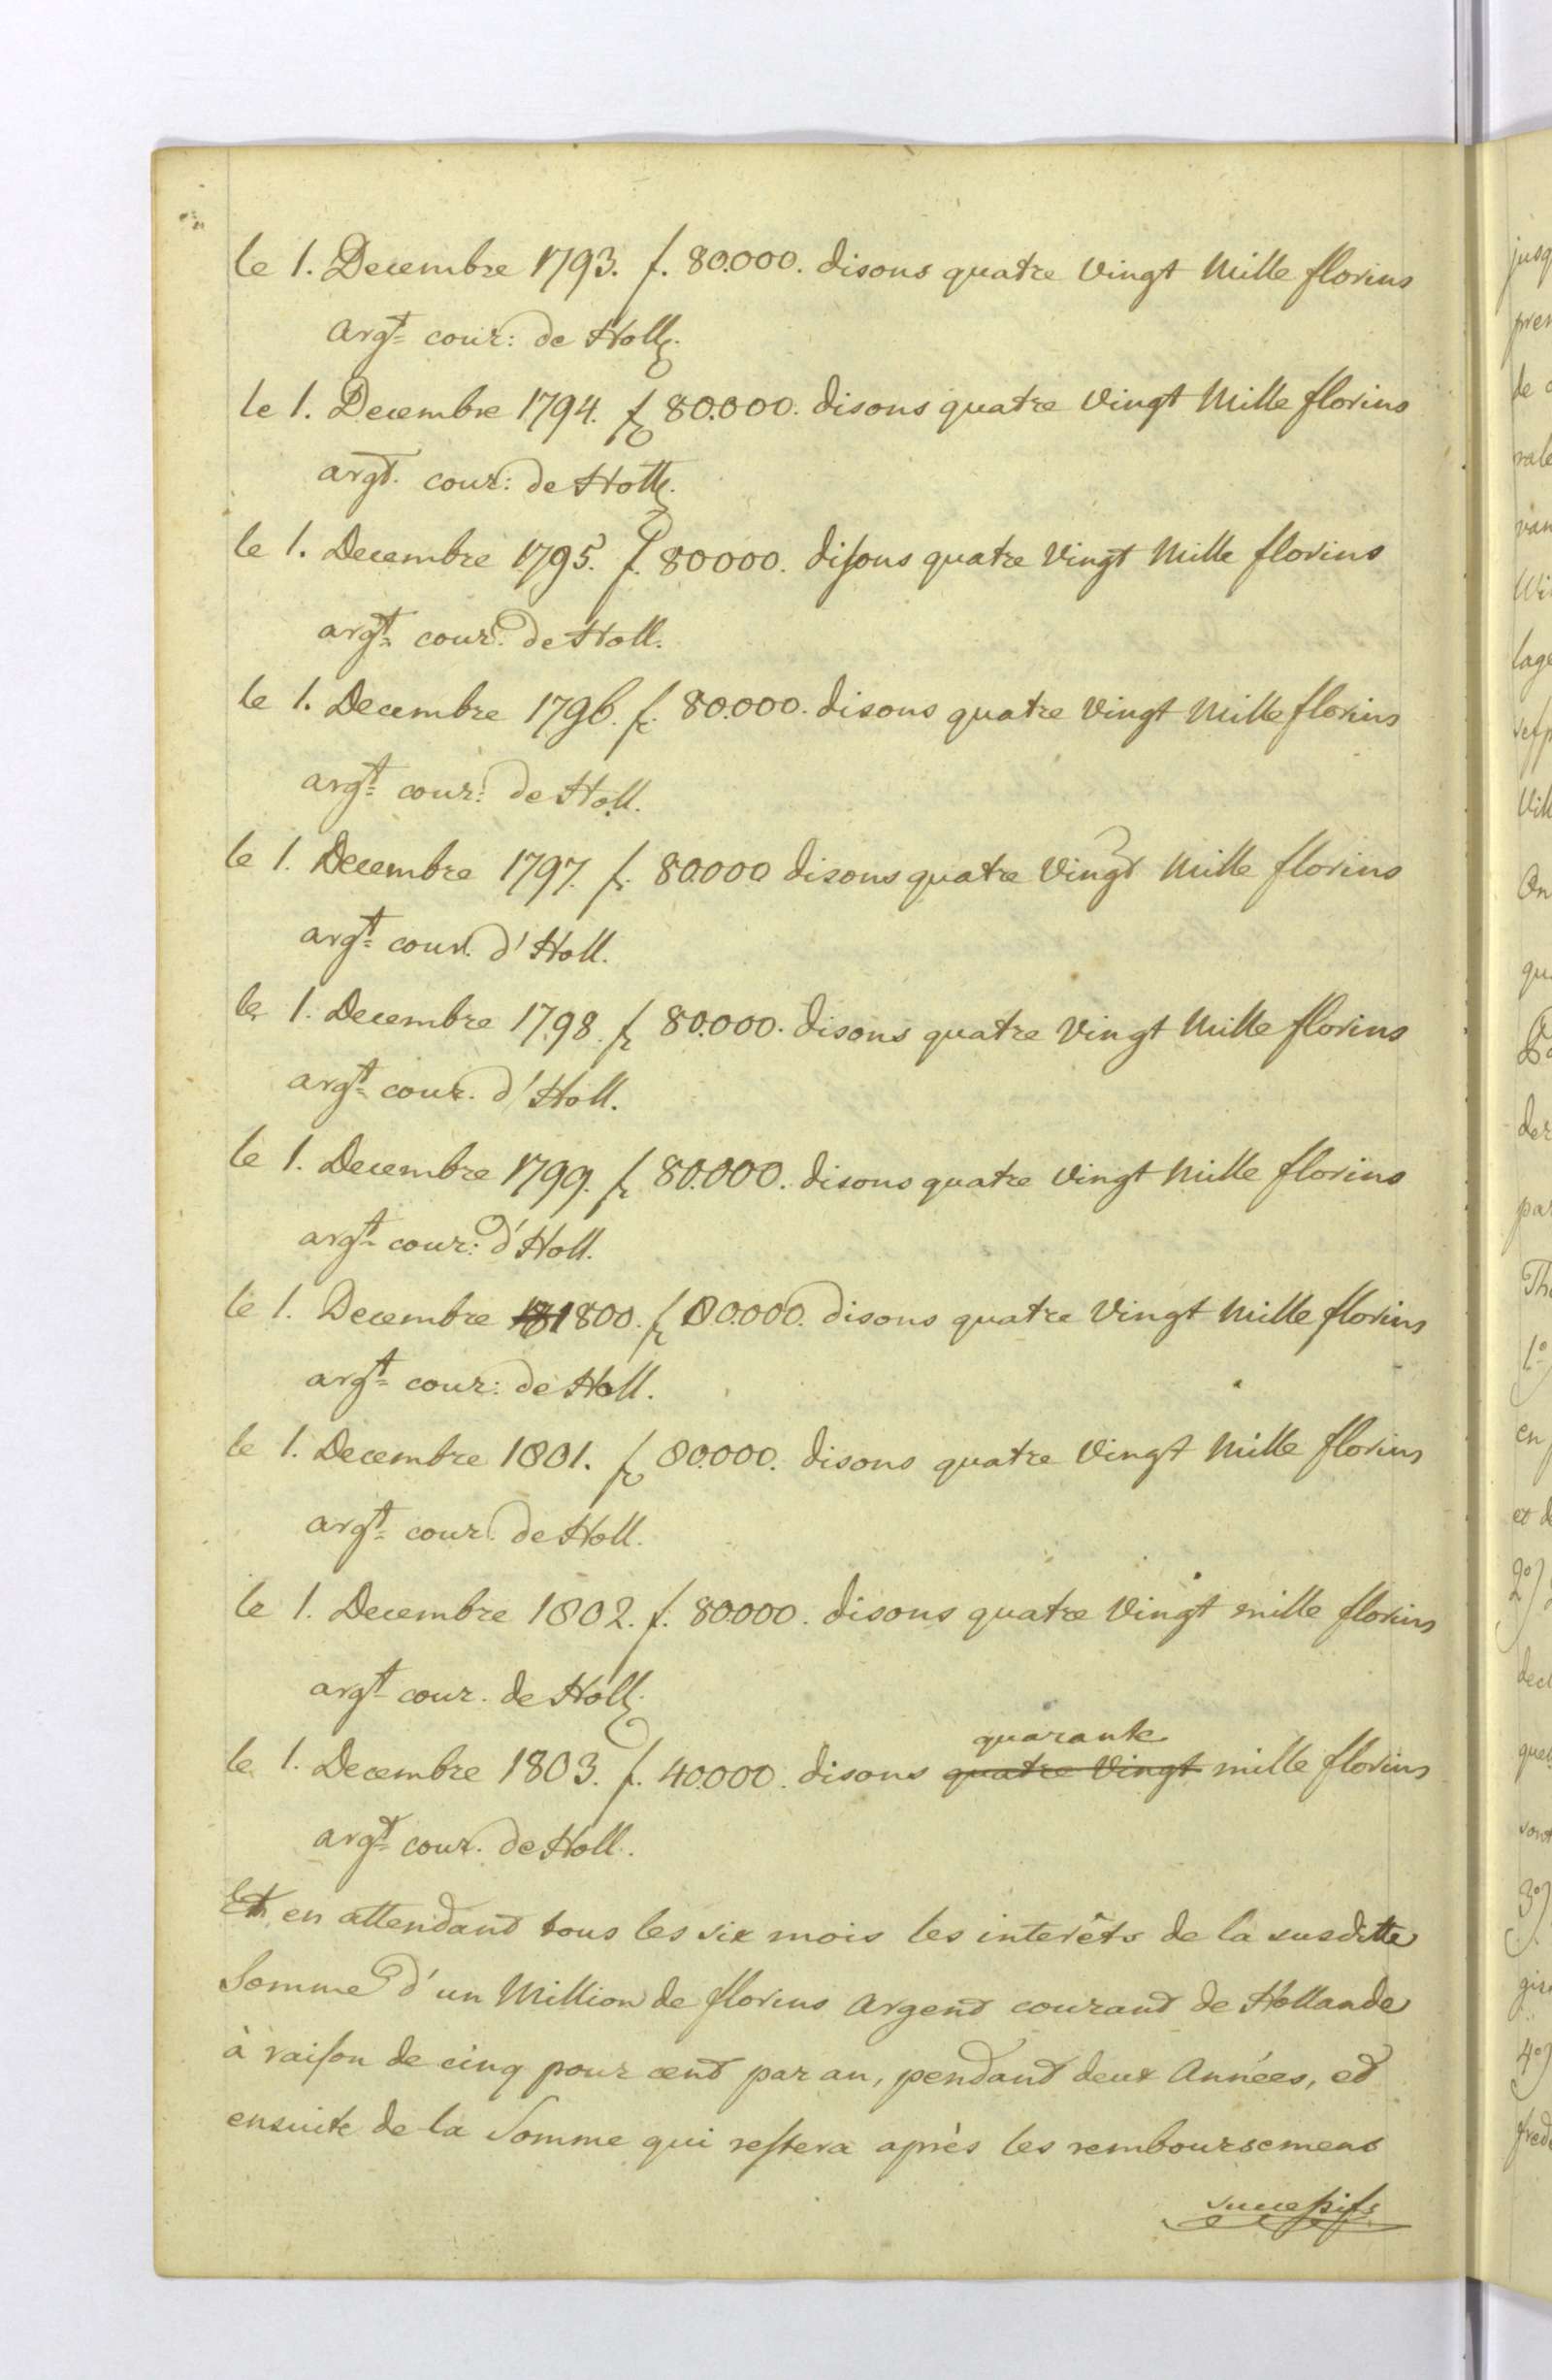 le 1. Decembre 1793. f. 80.000. disons quatre Vingt Mille florins
argt. cour: de Holl.
le 1. Decembre 1794. f 80.000. disons quatre Vingt Mille florins
argt. cour: de Holl.
le 1. Decembre 1795. f. 80000. disons quatre Vingt Mille florins
argt. cour. de Holl.
le 1. Decembre 1796. f. 80.000. disons quatre Vingt Mille florins
argt. cour: de Holl.
le 1. Decembre 1797. f. 80.000 disons quatre Vingt Mille florins
argt. cour. d'Holl.
le 1. Decembre 1798. f. 80.000. disons quatre Vingt Mille florins
argt. cour. d'Holl.
le 1. Decembre 1799. f. 80.000. disons quatre Vingt Mille florins
argt. cour: d'Holl.
le 1. Decembre 1800. f. 80.000. disons quatre Vingt Mille florins
argt. cour: de Holl.
le 1. Decembre 1801. f 80.000. disons quatre Vingt Mille florins
argt. cour. de Holl.
le 1. Decembre 1802. f. 80.000. disons quatre Vingt mille florins
argt. cour. de Holl.
quarante
le 1. Decembre 1803. f. 40.000. disons quatre Vingt mille florins
argt. cour. de Holl.
Et en attendant tous les six mois les interêts de la susditte
Somme d'un Million de florins Argent courant de Hollande
à raison de cinq pour cent par an, pendant deux Années, et
ensuite de la Somme qui restera après les remboursemens
successifs